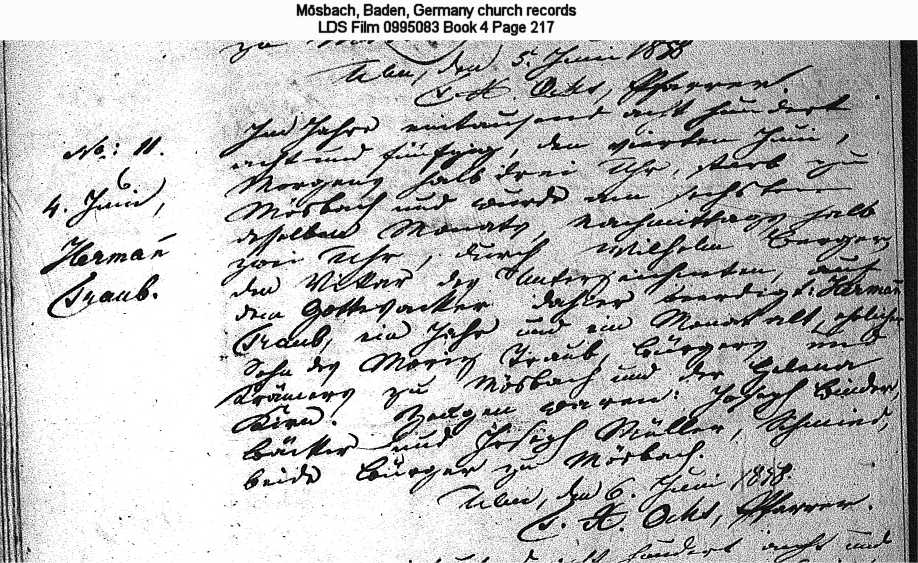 Mösbach, Baden, Germany church records
LDS Film 0995083 Book 4 Page 217
zu
Ulm, den 5. Juni 1858
C. A. Ochs, Pfarrer.
No: 11.
6
4. Juni,
Herman̅
Traub.
Im Jahre eintausend acht hundert
acht und fünfzig, den vierten Juni,
Morgens halb drei Uhr, starb zu
Mösbach und wurde am sechsten
desselben Monats, Nachmittags halb
zwei Uhr, durch Wilhelm Berger
den Vikar des Unterzeichneten, auf
dem Gottesacker dahier beerdigt: Herman̅
Traub, ein Jahr und ein Monat alt, ehelicher
Sohn des Moriz Traub, Bürgers und
Krämers zu Mösbach und der Helena
Birn. Zeugen waren: Joseph Binder,
Bäcker und Joseph Müller, Schmied,
beide Bürger zu Mösbach.
Ulm, den 6. Juni 1858.
C. A. Ochs, Pfarrer.
hundert acht und